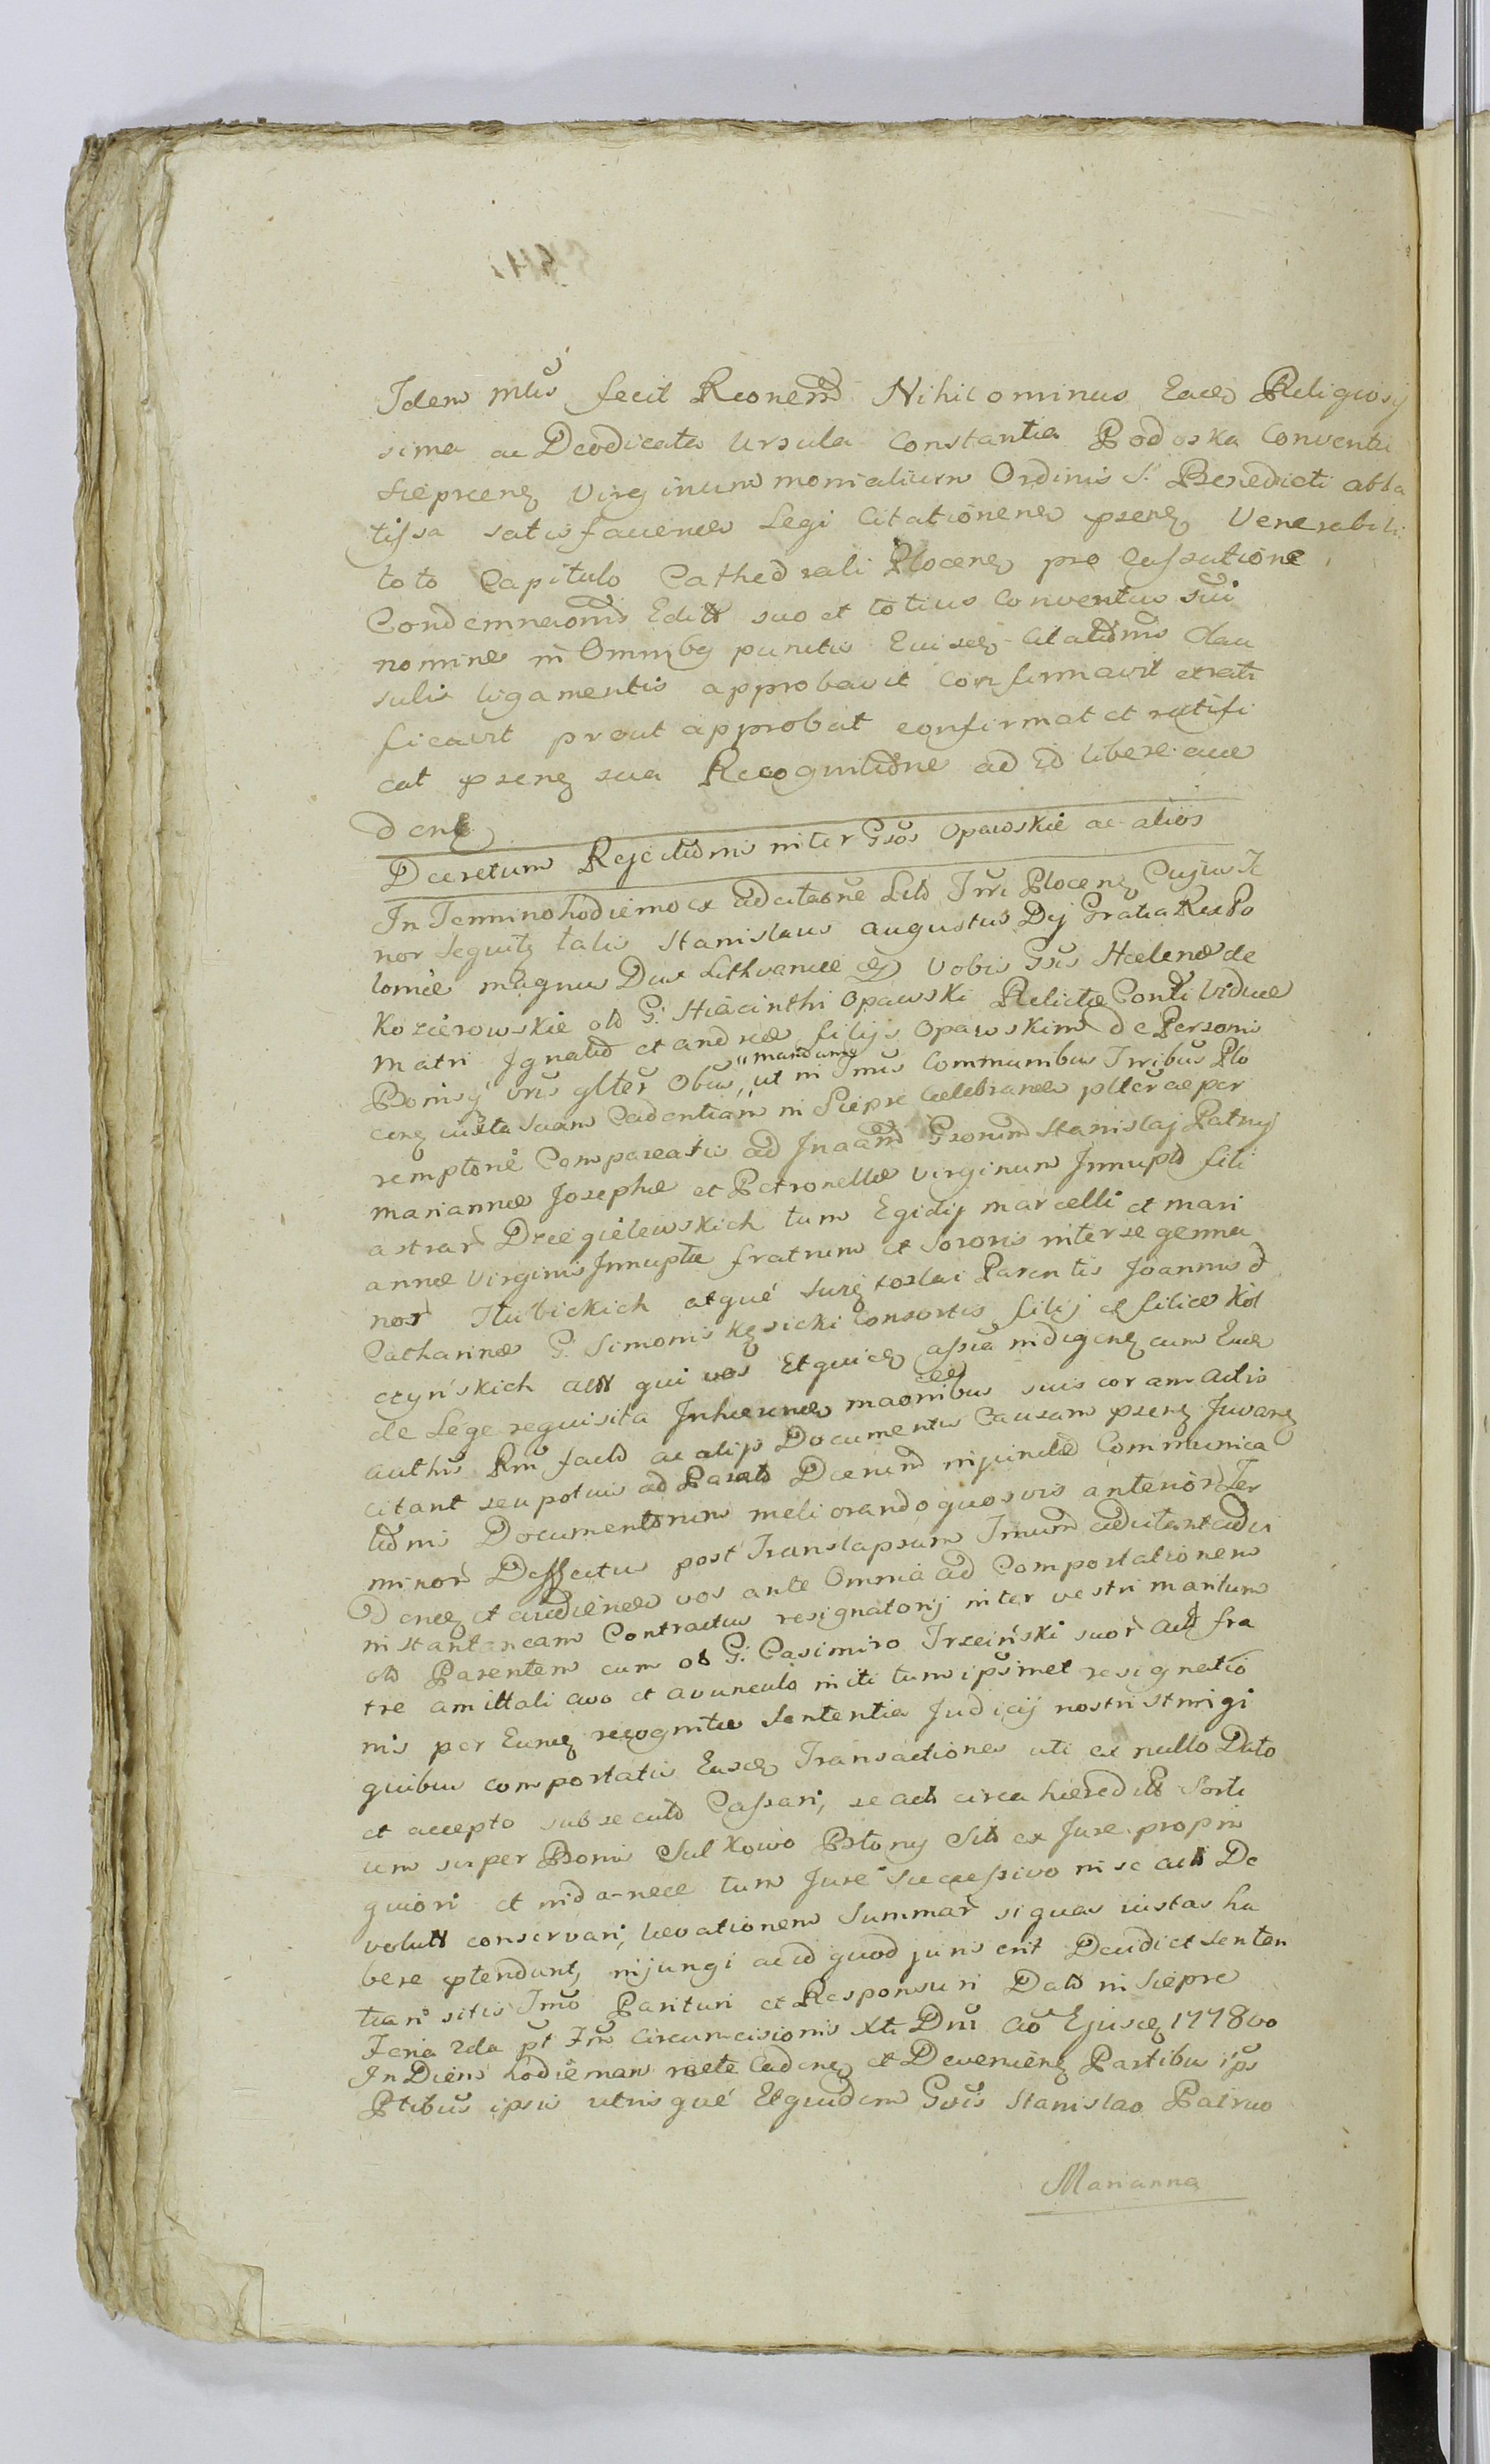 Idem Mtus fecit Rconem Nihilominus Eadem Religiosis
sima ac Deodicata Ursula Constantia Podoska Conventu
Sieprcens Virginum monialium Ordinis S. Benedicti abba
tissa satisfaciendo Legi Citationem psens Venerabili
toto Capitulo Cathedrali Plocens pro Cassatione
Condemnaonis Edit suo et totius Conventus sui
nomine in Omnibus punctis Eiusdem Citationis clau
sulis ligamentis approbavit confirmavit et rati
ficavit prout approbat confirmat et ratifi
cat psens sua Recognitione ad id libere acce
dens
Decretum Rejectionis inter Gsos Opawskie ac alios
In Termino hodierno ex adcitaone Lit Trri Plocens Cujus Te
nor sequitur talis Stanislaus Augustus Dei Gratia Rex Po
loniae magnus Dux Lithvaniae Vobis Gsis Helenae de
Kozierowskie ol G. Hiacinthi Opawski Relictae Conti Viduae
Matri Ignatio et Andreae filijs Opawskim de Personis
Bonisq vris glter Obus, "mandamus ut in Tmis Communibus Trribus Plo
cens iuxta suam Cadentiam in Sieprc celebrandis plter ac per
remptorie Compareatis ad Inaam Gsorum Stanislaj Patruj
Mariannae Josephae et Petronellae Virginum Innupt fili
astrar Dziegielewskich tum Egidij Marcelli et Mari
annae Virginis Innuptae fratrum et sororis inter se germa
nor Itubickich atque Parentis Joannis
Catharinae G. Simonis Kęsicki Consortis filij et filiae Koł
czyńskich act qui vos Etquidem assia indigens cum Ea
de Lege requisita Inhaerendo maonibus suis coram Actis
authis Rm fact ac alijs Documentis Causam psens Juvans
citant seu potius ad Parat Dcrum injunctae Communica
tionis Documentorum meliorando quosvis anterior Ter
minor Deffectus post Translapsum Tmum adcitant
dens et audiendo vos ante Omnia ad Comportationem
instantaneam Contractus resignatorij inter vestri maritum
ol Parentem cum ol G. Casimiro Trzciński suor act fra
tre amittali avo et avunculo initi tum ipsimet resignatio
nis per Eundem recognitae Sententia Judicij nostri stringi
quibus comportatis Easdem Transactiones uti ex nullo Dato
et accepto subsecuto Cassari, se act circa haeredit Sorti
um super Bonis Sulkowo Bstony Sit ex Jure propin
quiori et tum Jure Successivo in se act De
volut conservari, levationem Summar si quas iustas ha
bere ptendunt, injungi ac id quod juris erit Decidi et Senten
tiari sitis Tmo Parituri et Responsuri Dat in Sieprc
Feria 2da pt Fm Circumcisionis Xti Dni Ao Ejusdem 1778vo
In Diem hodiernam recte cadens et Deveniens Partibus ips
Ptibus ipsis utrisque Etquidem Gsis Stanislao Patruo
Marianna